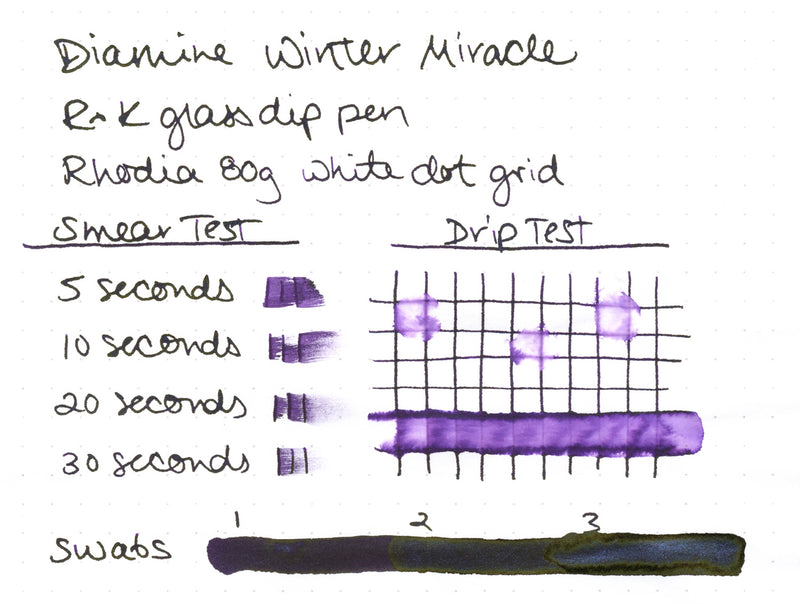 Diamine Winter Miracle
R+K glass dip pen
Rhodia 80g white dot grid
Smear Test
Drip Test
5 seconds
10 seconds
20 seconds
30 seconds
1 2 3
Swabs